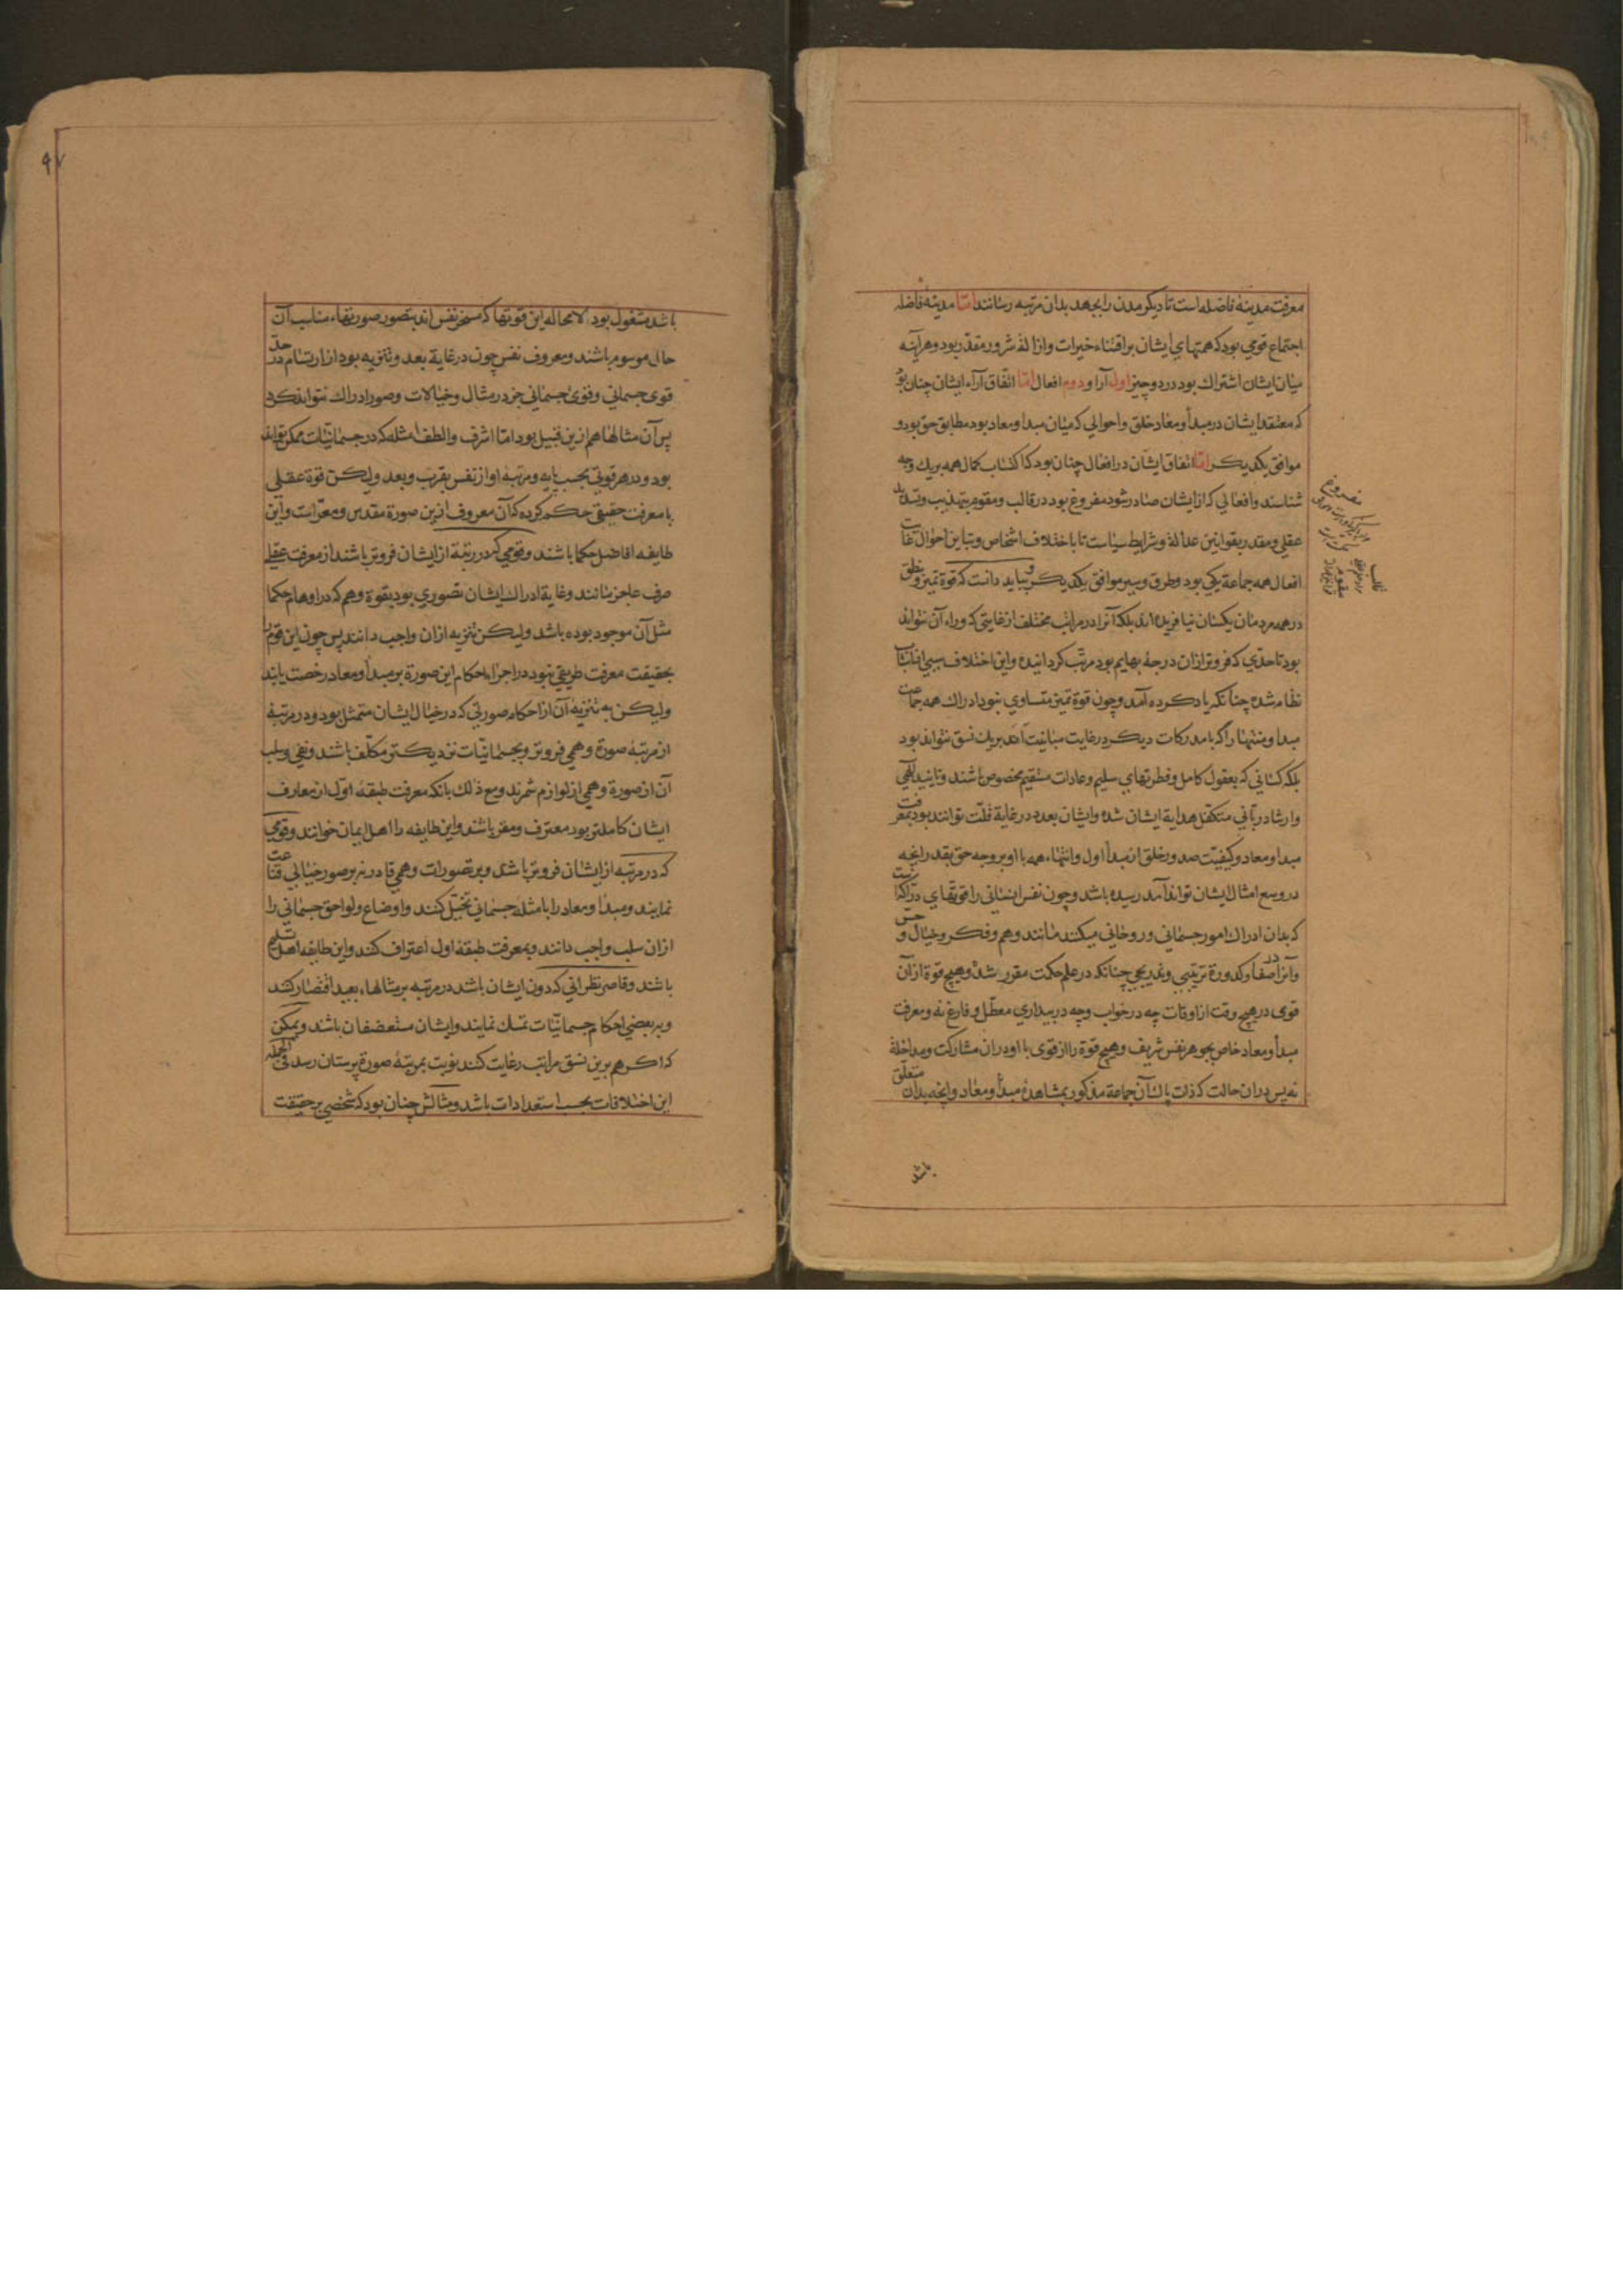 معرفت مدینهٔ فاضله است تا دیگر مدن را بجهد بدان مرتبه رسانند امّا مدینهٔ فاضله
اجتماع قومی بود که همتهای ایشان بر اقتناء خیرات و ازالهٔ شرور مقدّر بود و هرآینه
میان ایشان اشتراک بود در دو چیز اول آرا و دوم افعال امّا اتّفاق آراء ایشان چنان بود
که معتقد ایشان در مبدأ و معاد خلق و احوالی که میان مبدا و معاد بود مطابق حق بود و
موافق یکدیکر امّا اتفاق ایشان در افعال چنان بود که اکتساب کمال همه بریک وجه
شناسند و افعالی که از ایشان صادر شود مفروغ بود در قالب و مقوم بتهذیب و تسدید
عقلی و مقدر بقوانین عدالة و شرایط سیاست تا با اختلاف اشخاص و تباین احوال غایت
افعال همه جماعة یکی بود و طرق و سیر موافق یکدیکر و بباید دانست که قوة تمیز و نطق
در همه مردمان یکسان نیافریده اند بلکه آنرا در مراتب مختلف از غایتی که وراء آن نتواند
بود تا حدّی که فروتر ازان درجهٔ بهایم بود مرتّب کردانیده و این اختلاف سببی از اسباب
نظام شده چنانکه یاد کرده آمد و چون قوة تمیز متساوی نبود ادراک همه جماعت
مبدا و منتها را که با مدرکات دیکر در غایت مباینت اند بریک نسق نتواند بود
بلکه کسانی که بعقول کامل و فطرتهای سلیم و عادات مستقیم مخصوص باشند و تایید الهی
وارشاد ربّانی متکفّل هدایة ایشان شده وایشان بعدد در غایة قلّت توانند بود بمعرفت
مبدا و معاد و کیفیّت صدور خلق از مبدأ اول و انتهاء همه با او بر وجه حق بقدر آنچه
در وسع امثال ایشان تواند آمد رسیده باشد و چون نفس انسانی را قوتهای درّاکه است
که بدان ادراک امور جسمانی و روحانی میکند مانند وهم و فکر و خیال و حسّ
وآنرا در صفا و کدورة ترتیبی و تدریجی چنانکه در علم حکمت مقرر شده و هیچ قوة از آن
قوی در هیچ وقت از اوقات چه در خواب و چه در بیداری معطّل و فارغ نه و معرفت
مبدأ و معاد خاص بجوهر نفس شریف و هیچ قوة را از قوی با او در ان مشارکت و مداخلة
نه پس در ان حالت که ذات پاک آن جماعة مذکور بمشاهدهٔ مبدأ و معاد و آنچه بدان متعلّق
باشد
مفروغ
قالب
مقوم
٩٧
باشد مشغول بود لامحاله این قوتها که مسخر نفس اند بتصور صورتهاء مناسب آن
حال موسوم باشند و معروف نفس چون در غایة بعد و تنزیه بود از ارتسام در حدّ
قوی جسمانی و قوی جسمانی جز در مثال و خیالات و صور ادراک نتواند کرد
پس آن مثالها هم ازین قبیل بود امّا اشرف و الطف امثله که در جسمانیّات ممکن تواند
بود و در هر قوتی بحسب پایه و مرتبهٔ او از نفس بقرب و بعد ولیکن قوة عقلی
بامعرفت حقیقی حکم کرده که آن معروف ازین صورة مقدس و معرّاست و این
طایفه افاضل حکما باشند و قومی که در رتبة از ایشان فروتر باشند از معرفت عقلی
صرف عاجز مانند و غایة ادراک ایشان تصوری بود بقوة وهم که در اوهام حکما
مثل آن موجود بوده باشد ولیکن تنزیه ازان واجب دانند پس چون این قوم را
بحقیقت معرفت طریقی نبود در اجراء احکام این صورة بر مبدأ و معاد رخصت یابند
ولیکن به تنزیهٔ آن از احکام صورتی که در خیال ایشان متمثل بود و در مرتبهٔ
از مرتبهٔ صورة وهمی فروتر و بجسمانیّات نزدیکتر مکلّف باشند و نفی و سلب
آن از صورة وهمی از لوازم شمرند و مع ذلک بانکه معرفت طبقهٔ اوّل از معارف
ایشان کاملتر بود معترف و مقر باشند و این طایفه را اهل ایمان خوانند و قومی
که در مرتبه از ایشان فروتر باشد و بر تصورات وهمی قادر نه بر صور خیالی قناعت
نمایند و مبدأ و معاد را با مثله جسمانی تخیّل کنند و اوضاع و لواحق جسمانی را
ازان سلب واجب دانند و بمعرفت طبقهٔ اول اعتراف کنند و این طایفه اهل تسلیم
باشند و قاصر نظرانی که دون ایشان باشد در مرتبه بر مثالهاء بعید اقتصار کنند
و به بعضی احکام جسمانیّات تمسّک نمایند و ایشان مستضعفان باشند و یمکن
که اکر هم برین نسق مراتب رعایت کنند نوبت بمرتبهٔ صورة پرستان رسد فی الجمله
این اختلافات بحسب استعدادات باشد و مثالش چنان بود که شخصی بر حقیقت